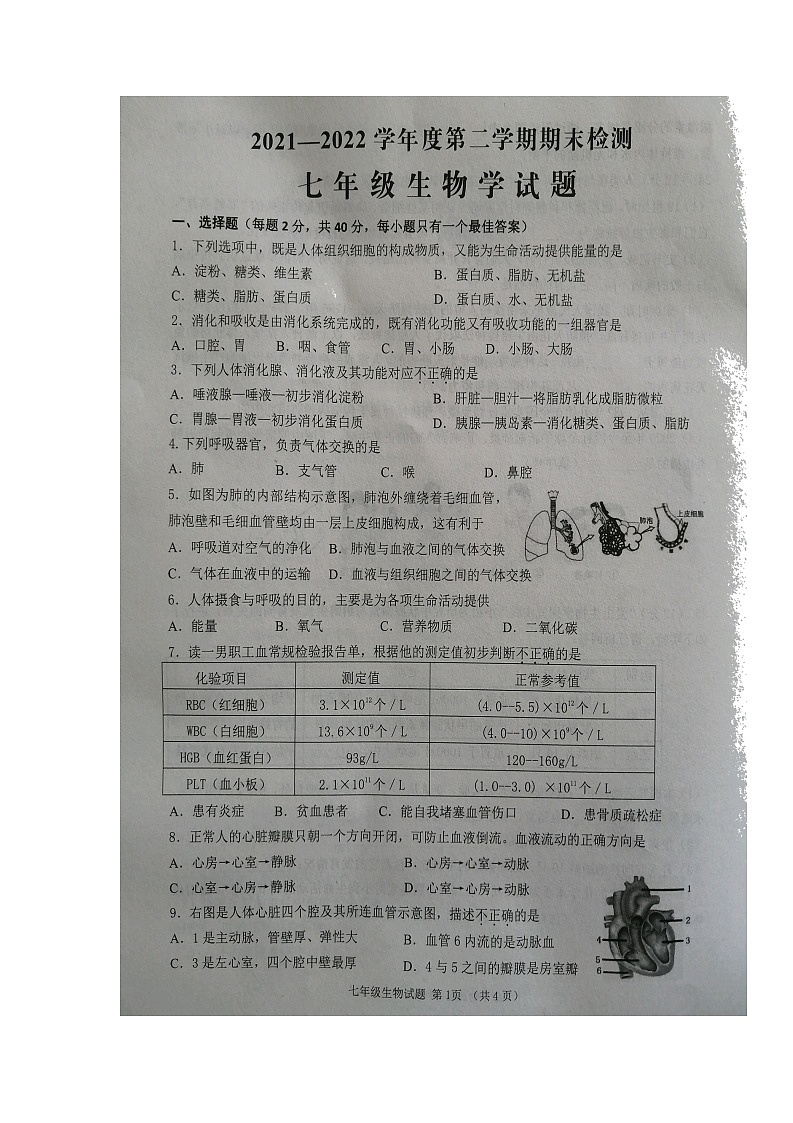 2021—2022 学年度第二学期期末检测
七年级生物学试题
一、选择题（每题 2 分，共 40 分，每小题只有一个最佳答案）
1．下列选项中，既是人体组织细胞的构成物质，又能为生命活动提供能量的是
A．淀粉、糖类、维生素 B．蛋白质、脂肪、无机盐
C．糖类、脂肪、蛋白质 D．蛋白质、水、无机盐
2、消化和吸收是由消化系统完成的，既有消化功能又有吸收功能的一组器官是
A．口腔、胃 B．咽、食管 C．胃、小肠 D．小肠、大肠
3．下列人体消化腺、消化液及其功能对应不正确的是
A．唾液腺—唾液—初步消化淀粉 B．肝脏—胆汁—将脂肪乳化成脂肪微粒
C．胃腺—胃液—初步消化蛋白质 D．胰腺—胰岛素—消化糖类、蛋白质、脂肪
4.下列呼吸器官，负责气体交换的是
A．肺 B．支气管 C．喉 D．鼻腔
5．如图为肺的内部结构示意图，肺泡外缠绕着毛细血管，
肺泡壁和毛细血管壁均由一层上皮细胞构成，这有利于
肺泡 上皮细胞
A．呼吸道对空气的净化 B．肺泡与血液之间的气体交换
C．气体在血液中的运输 D．血液与组织细胞之间的气体交换
6．人体摄食与呼吸的目的，主要是为各项生命活动提供
A．能量 B．氧气 C．营养物质 D．二氧化碳
7．读一男职工血常规检验报告单，根据他的测定值初步判断不正确的是
化验项目 测定值 正常参考值
RBC（红细胞） 3.1×10¹²个／L (4.0--5.5)×10¹²个／L
WBC（白细胞） 13.6×10⁹个／L (4.0--10)×10⁹个／L
HGB（血红蛋白） 93g/L 120--160g/L
PLT（血小板） 2.1×10¹¹个／L (1.0--3.0) ×10¹¹个／L
A．患有炎症 B．贫血患者 C．能自我堵塞血管伤口 D．患骨质疏松症
8．正常人的心脏瓣膜只朝一个方向开闭，可防止血液倒流。血液流动的正确方向是
A．心房→心室→静脉 B．心房→心室→动脉
C．心室→心房→静脉 D．心室→心房→动脉
9．右图是人体心脏四个腔及其所连血管示意图，描述不正确的是
A．1 是主动脉，管壁厚、弹性大 B．血管 6 内流的是动脉血
C．3 是左心室，四个腔中壁最厚 D．4 与 5 之间的瓣膜是房室瓣
1
2
4 3
5
6
七年级生物试题 第 1页 （共 4 页）